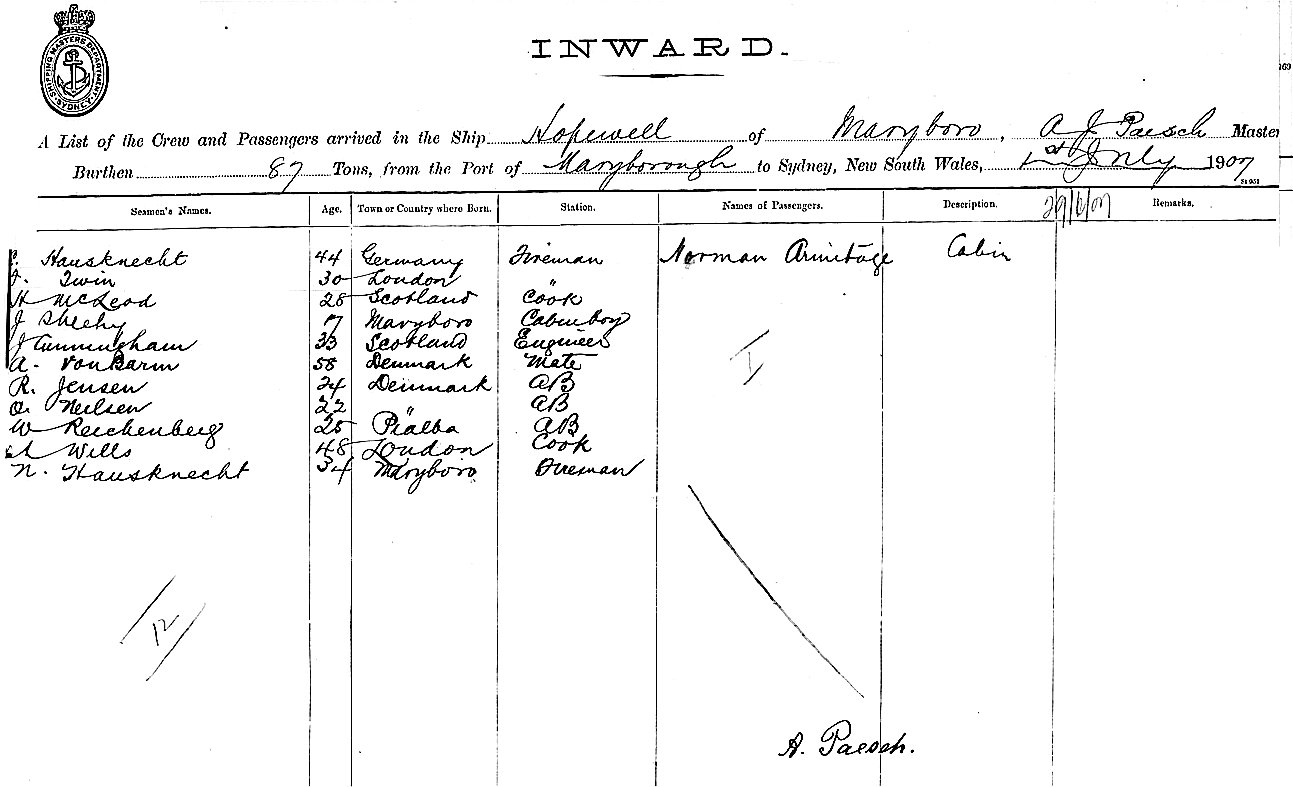 SHIPPING MASTERS DEPARTMENT
SYDNEY
INWARD.
169
A List of the Crew and Passengers arrived in the Ship Hopewell of Maryboro, A J Paesch Master
Burthen 87 Tons, from the Port of Maryborough to Sydney, New South Wales, 1st July 1907
Seamen's Names. Age. Town or Country where Born. Station. Names of Passengers. Description. 29/6/07 Remarks.
Hausknecht 44 Germany Fireman Norman Armitage Cabin
Irwin 30 London "
H McLeod 28 Scotland Cook
J Sheehy 17 Maryboro Cabinboy
J Cunningham 33 Scotland Engineer
A. Von Barm 58 Denmark Mate
R. Jensen 24 Denmark AB
O. Neilsen 22 " AB
W Reichenberg 25 Pialba AB
A Wills 48 London Cook
N. Hausknecht 34 Maryboro Fireman
1
12
A. Paesch.